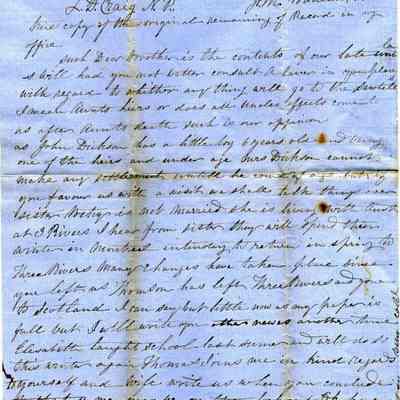 L.D. Craig N.P.
True copy of the original remaining of Record in my
office.
such Dear Brother is the contents of our late uncle
s Will had you not better consult a in your place
with regard to whether any thing will go to the
I mean Aunts heirs or does all uncles effects come to
us after Aunts death such is our oppinion
as John Dickson has a little boy 6 years old and being
one of the heirs and under age Mrs Dickson cannot
make any settlement untill he comes of age but if
you favour us with a visit we shall talk things over
sister is not married she is living with
at 3 Rivers I hear from sister they will spend their
winter in Montreal intending to return in spring to
Three Rivers many changes have taken place since
you left us Thomson has left Three Rivers and gone
to Scotland I can say but little now as my paper is
full but I will write you other news another time
Elisabeth taught school last summer and will do so
this winter again Thomas Joins me in kind regards
to yourself and wife write us when you conclude